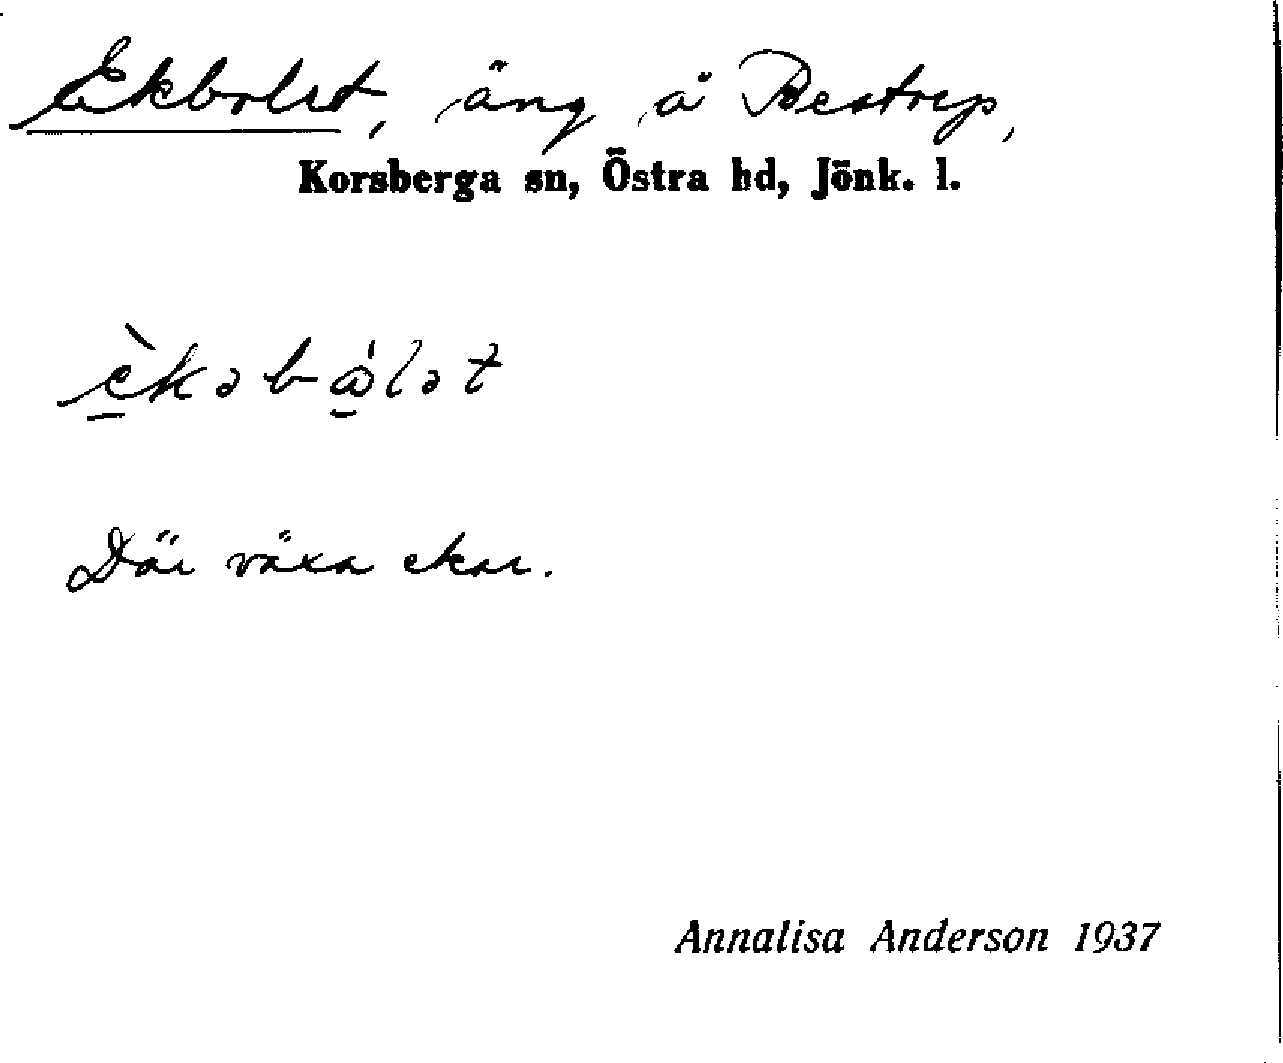 Ekbolet, äng å Bestrup,
Korsberga sn, Östra hd, Jönk. l.
èkəbålət
Där växa ekar.
Annalisa Anderson 1937